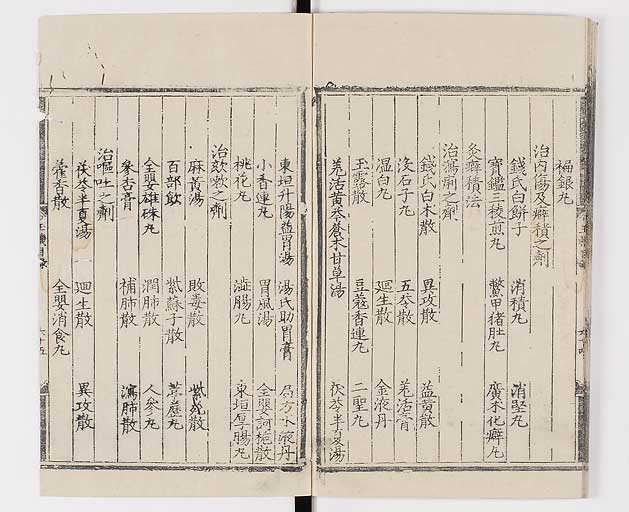 褊銀丸
治內傷及癖積之劑
錢氏白餅子 消積丸 消堅丸
寶鑑三稜煎丸 鱉甲猪肚丸 廣朮化癖丸
灸癖積法
治瀉痢之劑
錢氏白朮散 異攻散 益黃散
沒石子丸 五苓散 羗活膏
溫白丸 廻生散 金液丹
玉露散 豆蔲香連丸 二聖丸
羗活黃芩蒼朮甘草湯 茯苓半夏湯
東垣升陽益胃湯 湯氏助胃膏 局方水液丹
小香連丸 胃風湯 全嬰訶梔散
桃花丸 澁腸丸 東垣厚腸丸
治咳嗽之劑
麻黃湯 敗毒散 紫菀散
百部飮 紫蘇子散 葶藶丸
全嬰雄硃丸 潤肺散 人參丸
參杏膏 補肺散 瀉肺散
治嘔吐之劑
茯苓半夏湯 廻生散 異攻散
藿香散 全嬰消食丸
六十五